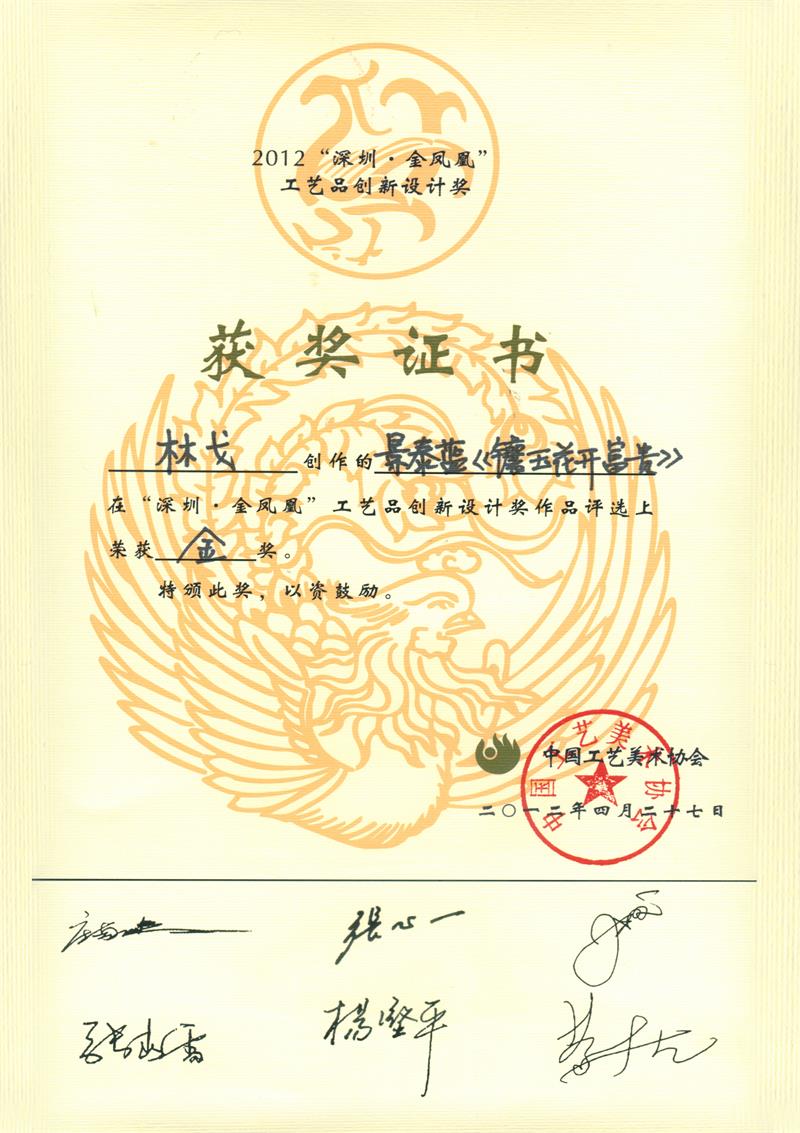 2012“深圳·金凤凰”
工艺品创新设计奖
获奖证书
林戈 创作的 景泰蓝《镶玉花开富贵》
在“深圳·金凤凰”工艺品创新设计奖作品评选上
荣获 金 奖。
特颁此奖，以资鼓励。
中国工艺美术协会
中国工艺美术协会
二〇一二年四月二十七日
張心一
楊堅平